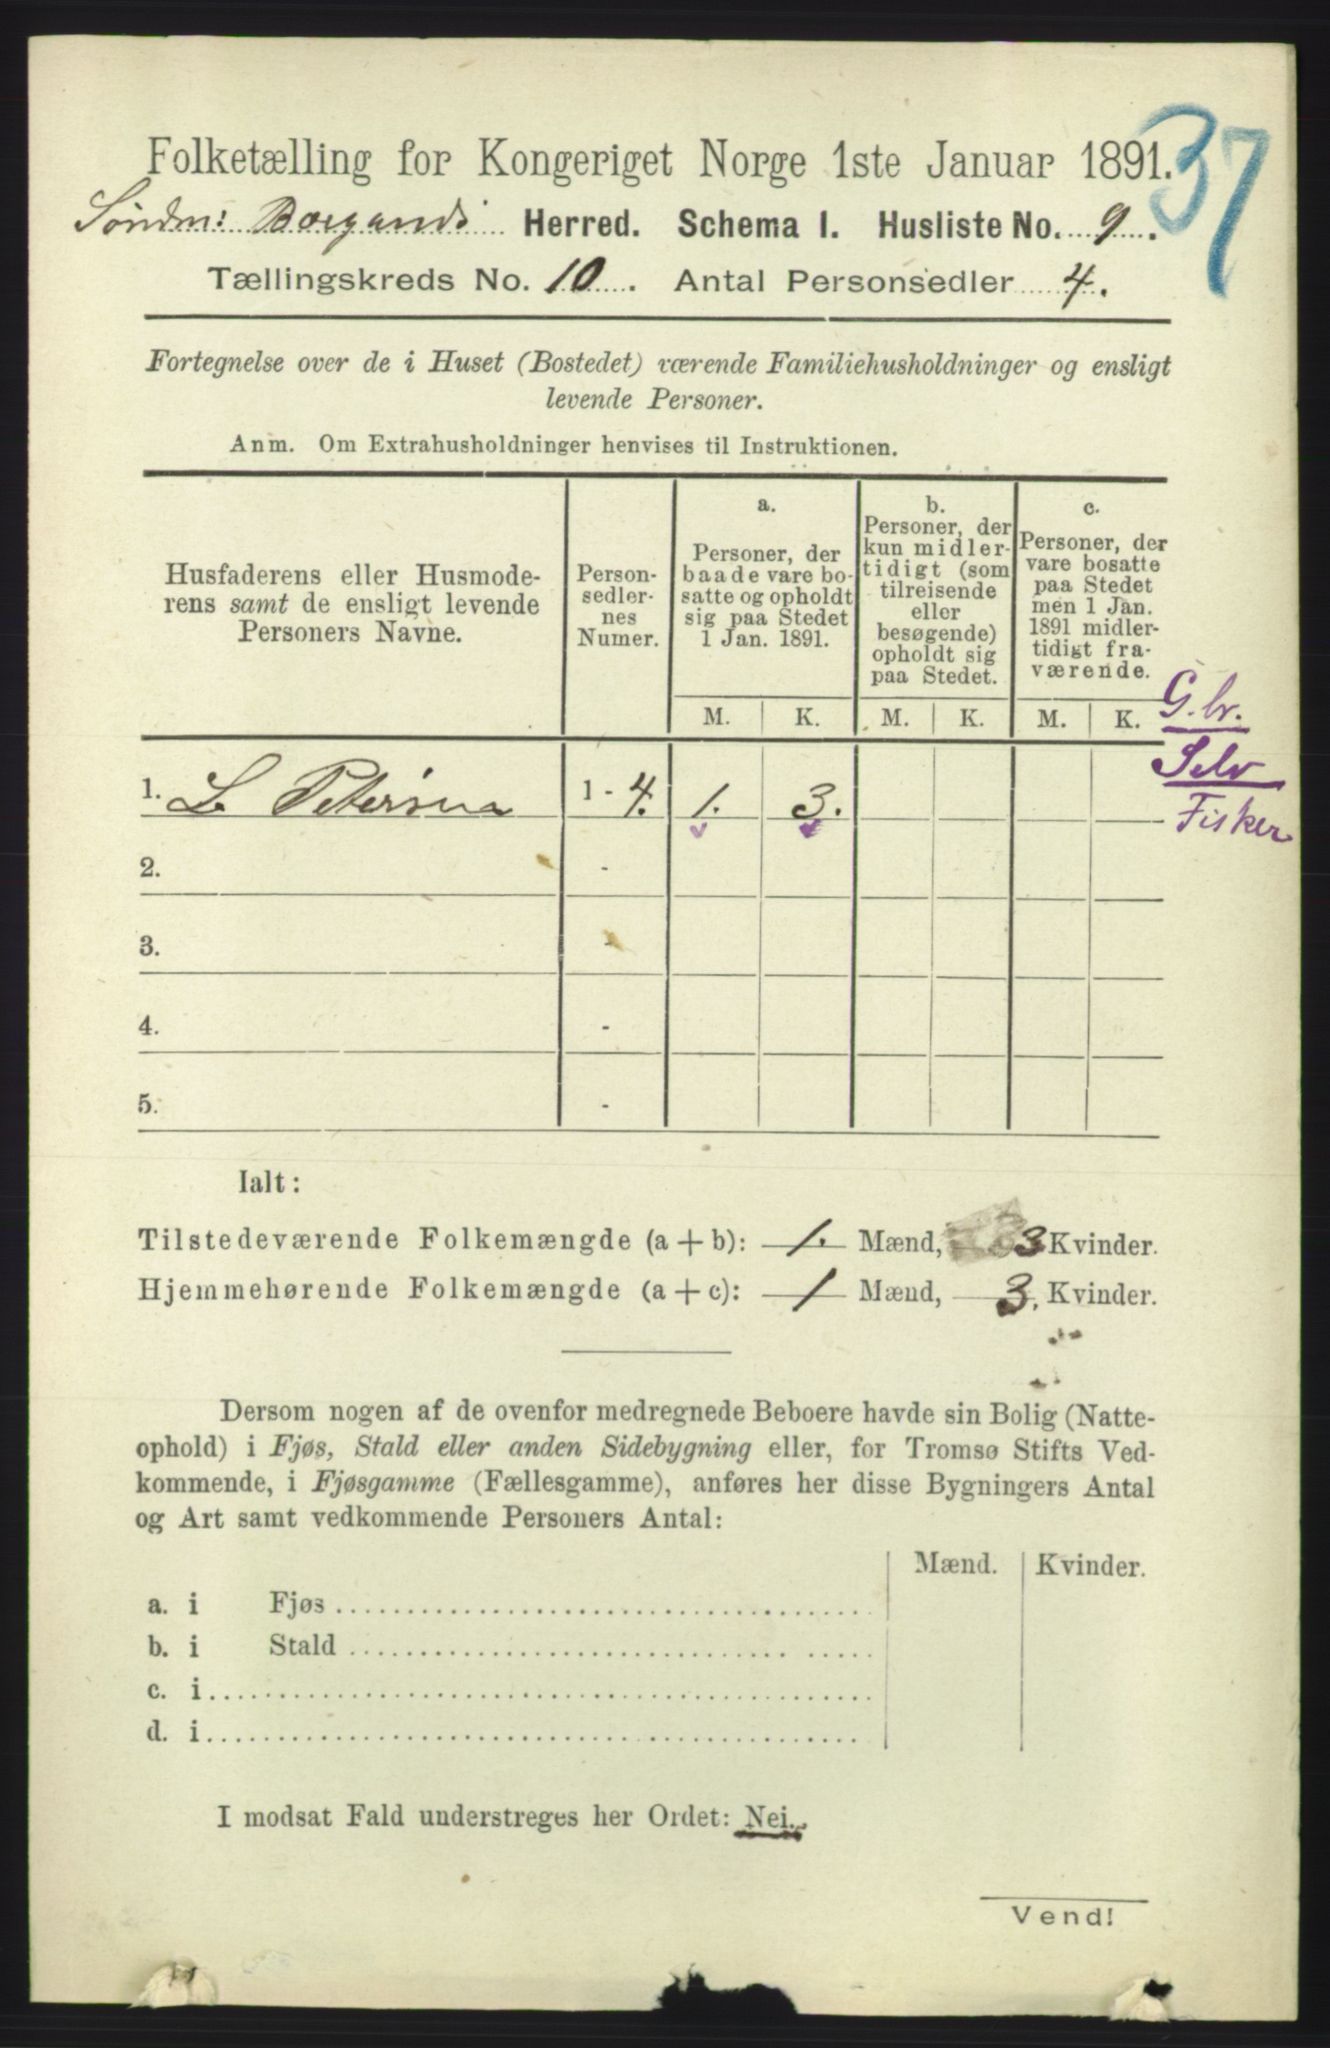 37
Folketælling for Kongeriget Norge 1ste Januar 1891.
Søndm: Borgunds Herred. Schema I. Husliste No. 9.
Tællingskreds No. 10. Antal Personsedler 4.
Fortegnelse over de i Huset (Bostedet) værende Familiehusholdninger og ensligt
levende Personer.
Anm. Om Extrahusholdninger henvises til Instruktionen.
Husfaderens eller Husmode-
rens samt de ensligt levende
Personers Navne.
Person-
sedler-
nes
Numer.
a.
Personer, der
baade vare bo-
satte og opholdt
sig paa Stedet
1 Jan. 1891.
b.
Personer, der
kun midler-
tidigt (som
tilreisende
eller
besøgende)
opholdt sig
paa Stedet.
c.
Personer, der
vare bosatte
paa Stedet
men 1 Jan.
1891 midler-
tidigt fra-
værende.
M. K. M. K. M. K.
G.br.
Selv
Fisker
1. L. Petersen 1 - 4. 1. 3.
2. -
3. -
4. -
5. -
Ialt:
Tilstedeværende Folkemængde (a + b): 1. Mænd, 3 Kvinder.
Hjemmehørende Folkemængde (a + c): 1 Mænd, 3. Kvinder.
Dersom nogen af de ovenfor medregnede Beboere havde sin Bolig (Natte-
ophold) i Fjøs, Stald eller anden Sidebygning eller, for Tromsø Stifts Ved-
kommende, i Fjøsgamme (Fællesgamme), anføres her disse Bygningers Antal
og Art samt vedkommende Personers Antal:
Mænd. Kvinder.
a. i Fjøs
b. i Stald
c. i
d. i
I modsat Fald understreges her Ordet: Nei.
Vend!